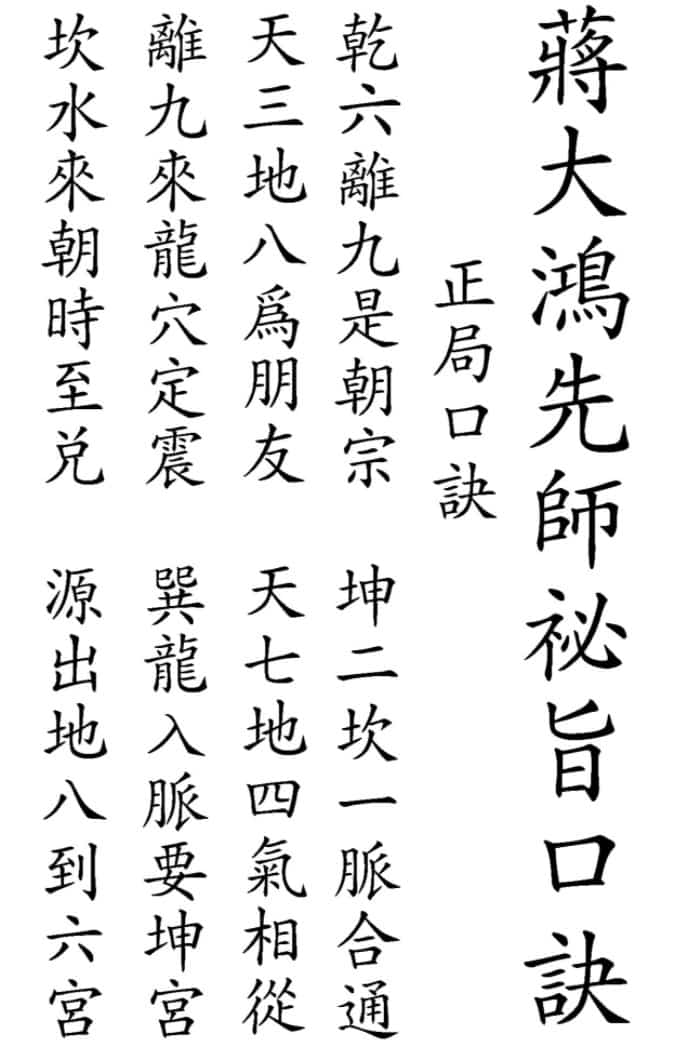 蔣大鴻先師祕旨口訣
正局口訣
乾六離九是朝宗　坤二坎一脈合通
天三地八爲朋友　天七地四氣相從
離九來龍穴定震　巽龍入脈要坤宮
坎水來朝時至兌　源出地八到六宮